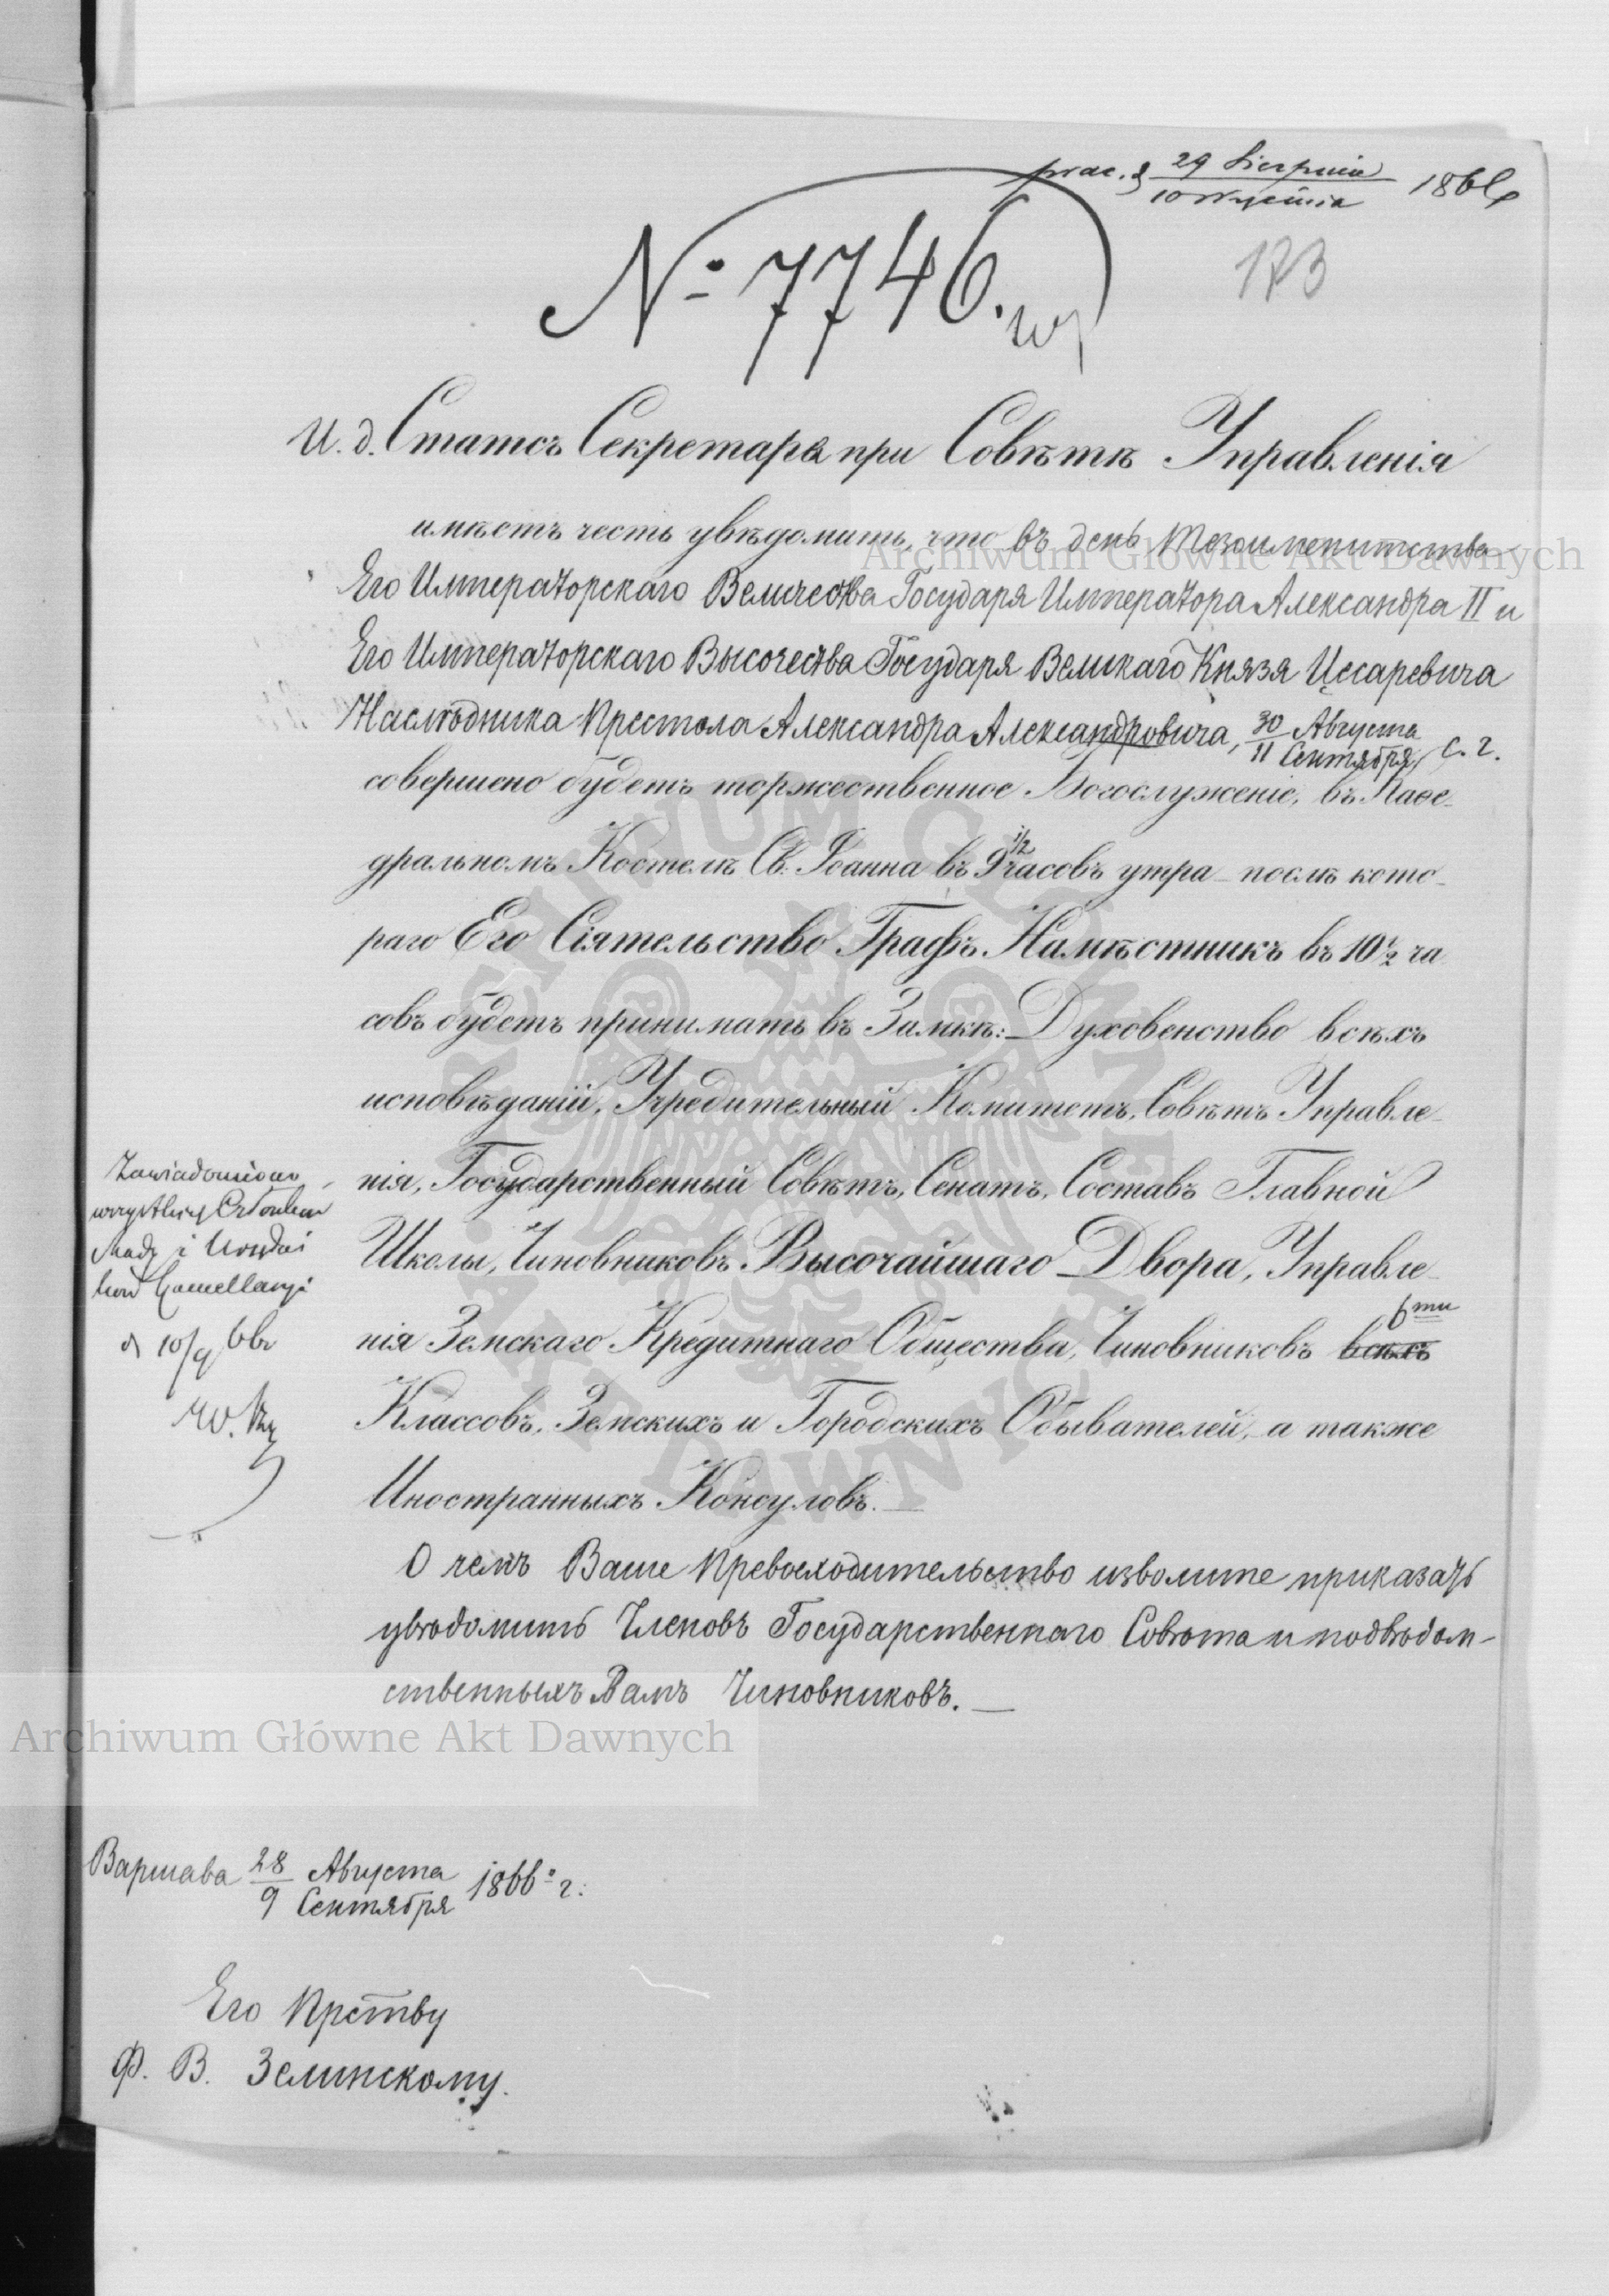 29 Sierpnia
10 Września 1866
173
№ 7746.
И. д. Статсъ Секретаря при Совѣтѣ Управленія
имѣетъ честь увѣдомить, что въ день Тезоименитства
Его Императорскаго Величества Государя Императора Александра II и
Его Императорскаго Высочества Государя Великаго Князя Цесаревича
Наслѣдника Престола Александра Александровича, 30 Августа / 11 Сентября с. г.
совершено будетъ торжественное Богослуженіе, въ Каѳе-
дральномъ Костелѣ Св. Іоанна въ 9 1/2 часовъ утра – послѣ кото-
раго Его Сіятельство Графъ Намѣстникъ въ 10 1/2 ча
совъ будетъ принимать въ Замкѣ: Духовенство всѣхъ
исповѣданій, Учредительный Комитетъ, Совѣтъ Управле-
нія, Государственный Совѣтъ, Сенатъ, Составъ Главной
Школы, Чиновниковъ Высочайшаго Двора, Управле-
нія Земскаго Кредитнаго Общества, Чиновниковъ всѣхъ 6ти
Классовъ, Земскихъ и Городскихъ Обывателей, а также
Иностранныхъ Консуловъ. —
О чемъ Ваше Превосходительство изволите приказать
увѣдомить Членовъ Государственнаго Совѣта и подвѣдом-
ственныхъ Вамъ Чиновниковъ. —
Zawiadomiono
wszystkich Członków
Rady i Urzędni
ków Kancellaryi
d 10/9 66r
Варшава 28 Августа / 9 Сентября 1866 г:
Его Прству
Ф. В. Зелинскому.
Archiwum Główne Akt Dawnych
Archiwum Główne Akt Dawnych
ARCHIWUM GŁÓWNE AKT DAWNYCH